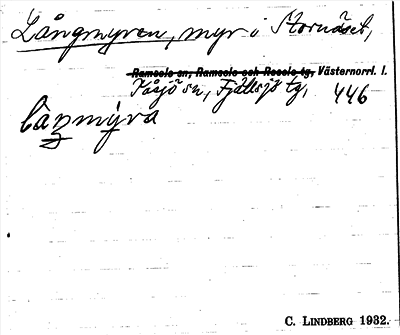 Långmyren, myr i Stornäset,
Ramsele sn, Ramsele och Resele tg, Västernorrl. l.
Tåsjö sn, Fjällsjö tg, 446
låŋmýra
C. LINDBERG 1932.